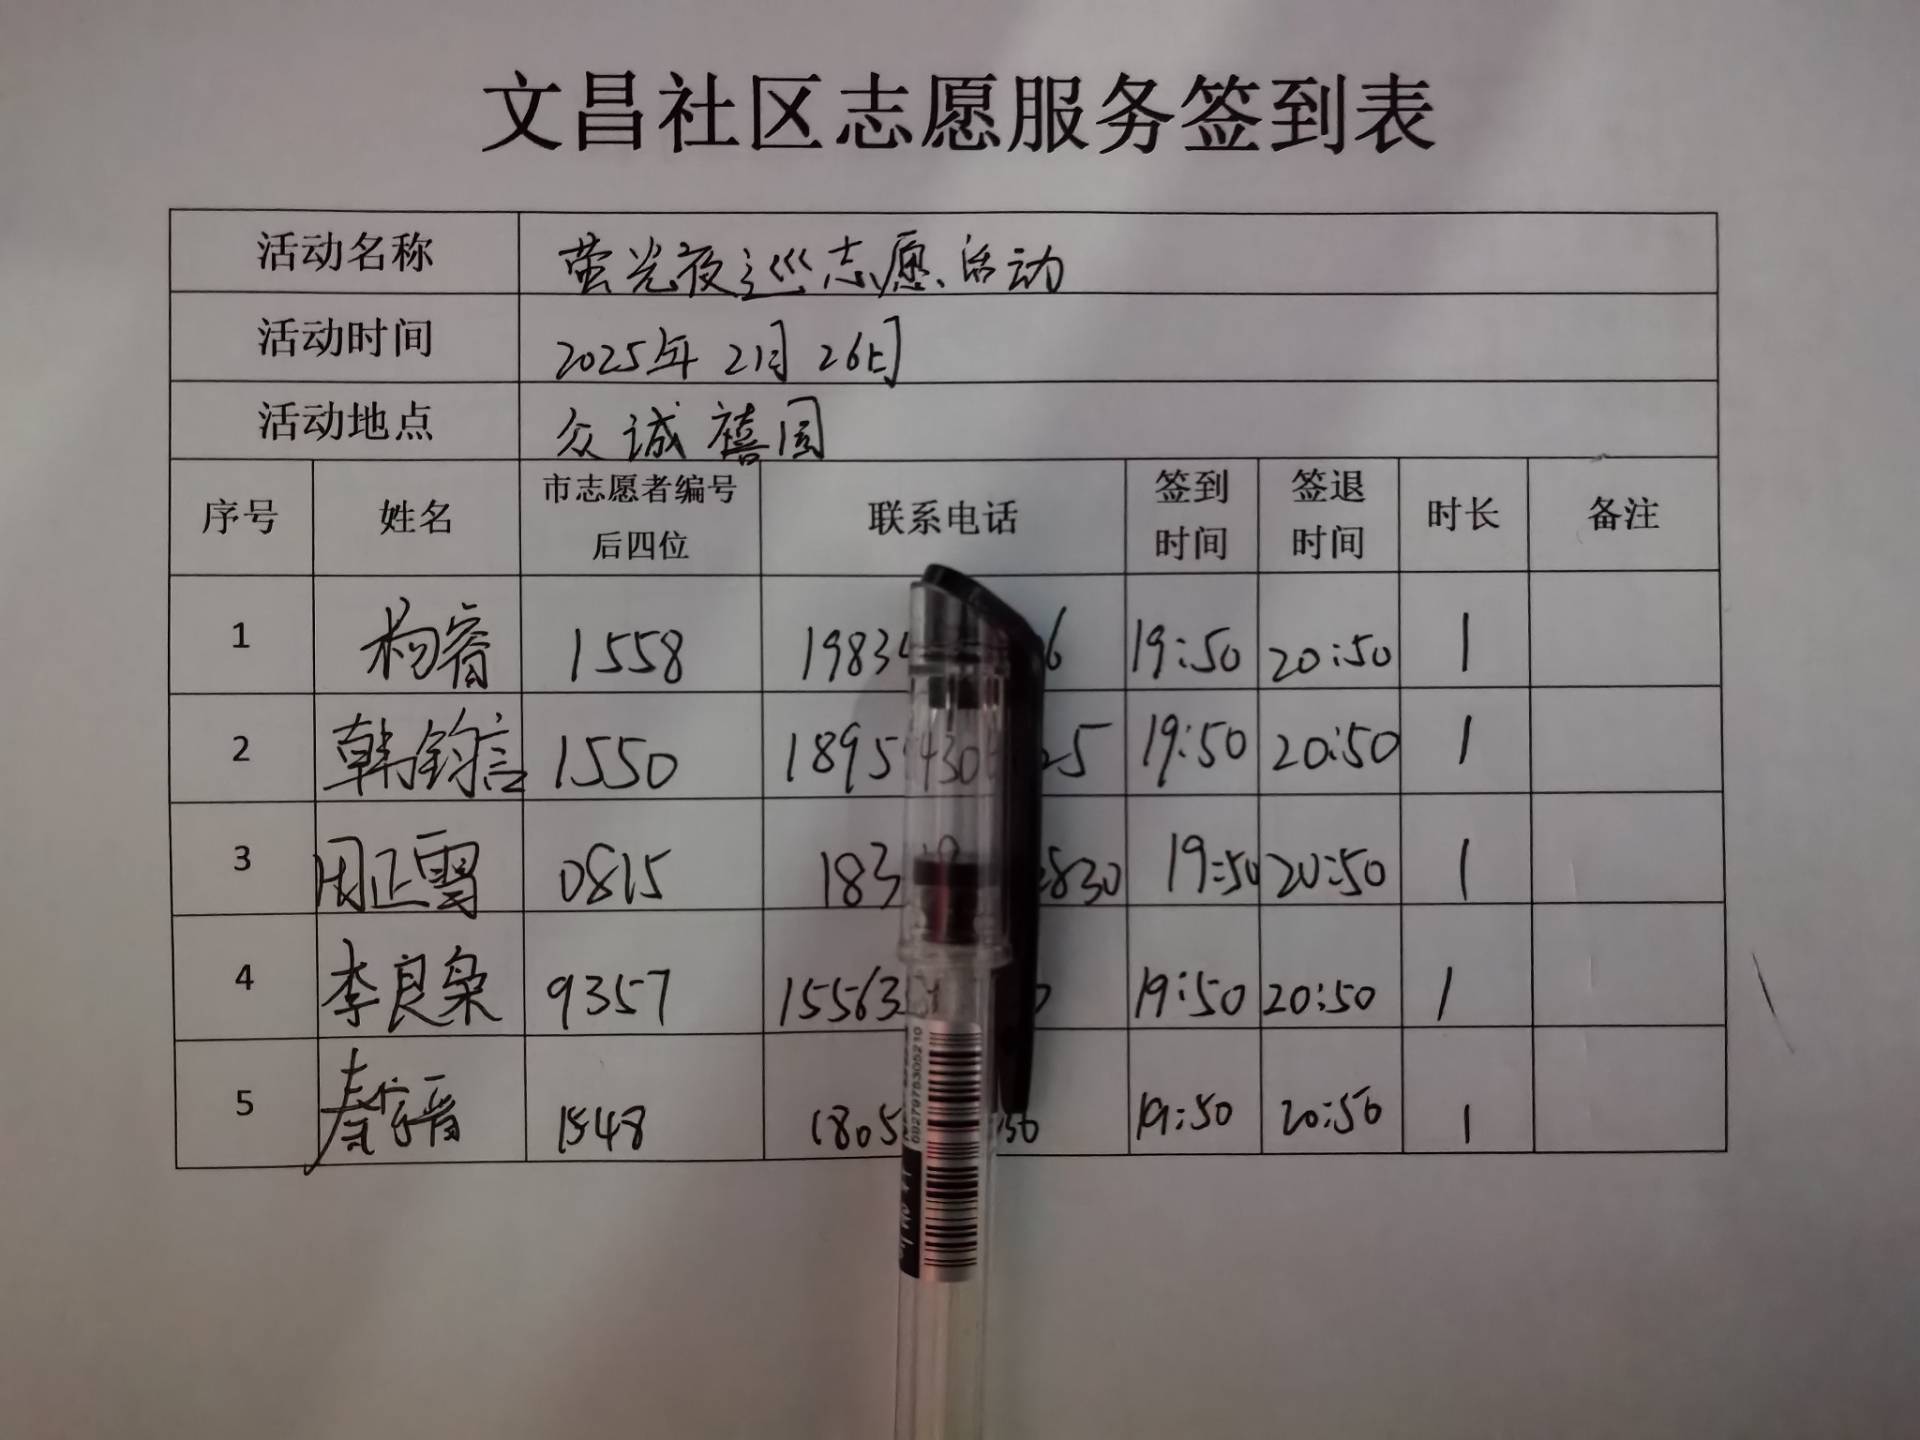 文昌社区志愿服务签到表
活动名称 萤光夜巡志愿活动
活动时间 2025年2月26日
活动地点 众诚禧园
序号 姓名 市志愿者编号后四位 联系电话 签到时间 签退时间 时长 备注
1 杨睿 1558 1983 6 19:50 20:50 1
2 韩钧言 1550 1895 430 25 19:50 20:50 1
3 周正雪 0815 183 830 19:50 20:50 1
4 李良枭 9357 15563 19:50 20:50 1
5 1548 1805 50 19:50 20:50 1
6927978305210